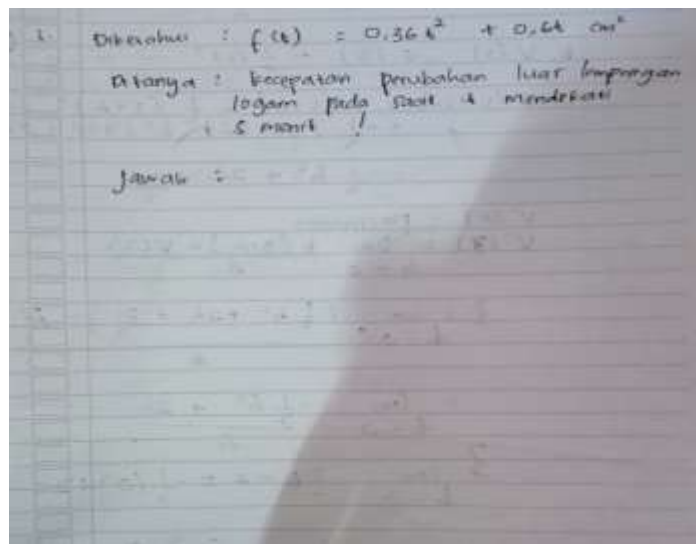 1. Diketahui : f(t) = 0,36 t² + 0,6t cm²
Ditanya : kecepatan perubahan luar lempengan
logam pada saat t mendekati
5 menit !
Jawab :